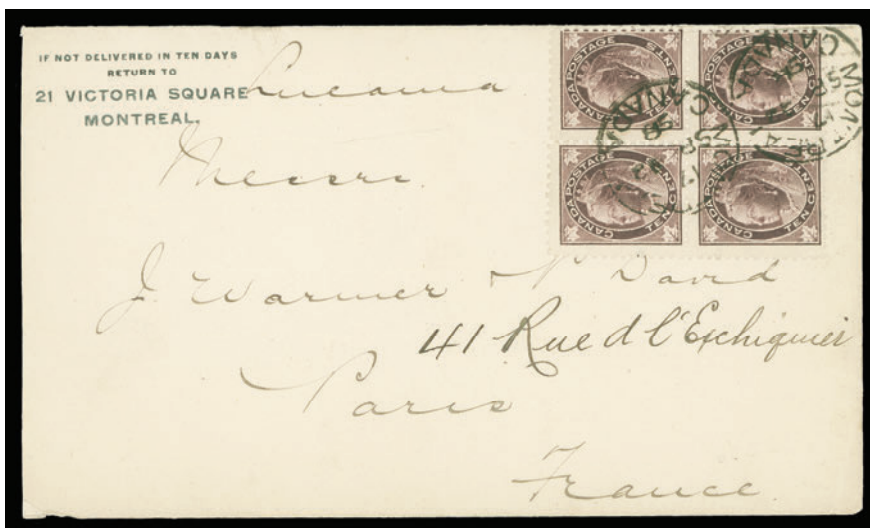 IF NOT DELIVERED IN TEN DAYS
RETURN TO
21 VICTORIA SQUARE
MONTREAL.
Lucania
Messrs.
J. Warmer & David
41 Rue d l'Exchiquier
Paris
France.
CANADA POSTAGE
TEN CENTS
CANADA POSTAGE
TEN CENTS
CANADA POSTAGE
TEN CENTS
CANADA POSTAGE
TEN CENTS
MONTREAL
CANADA